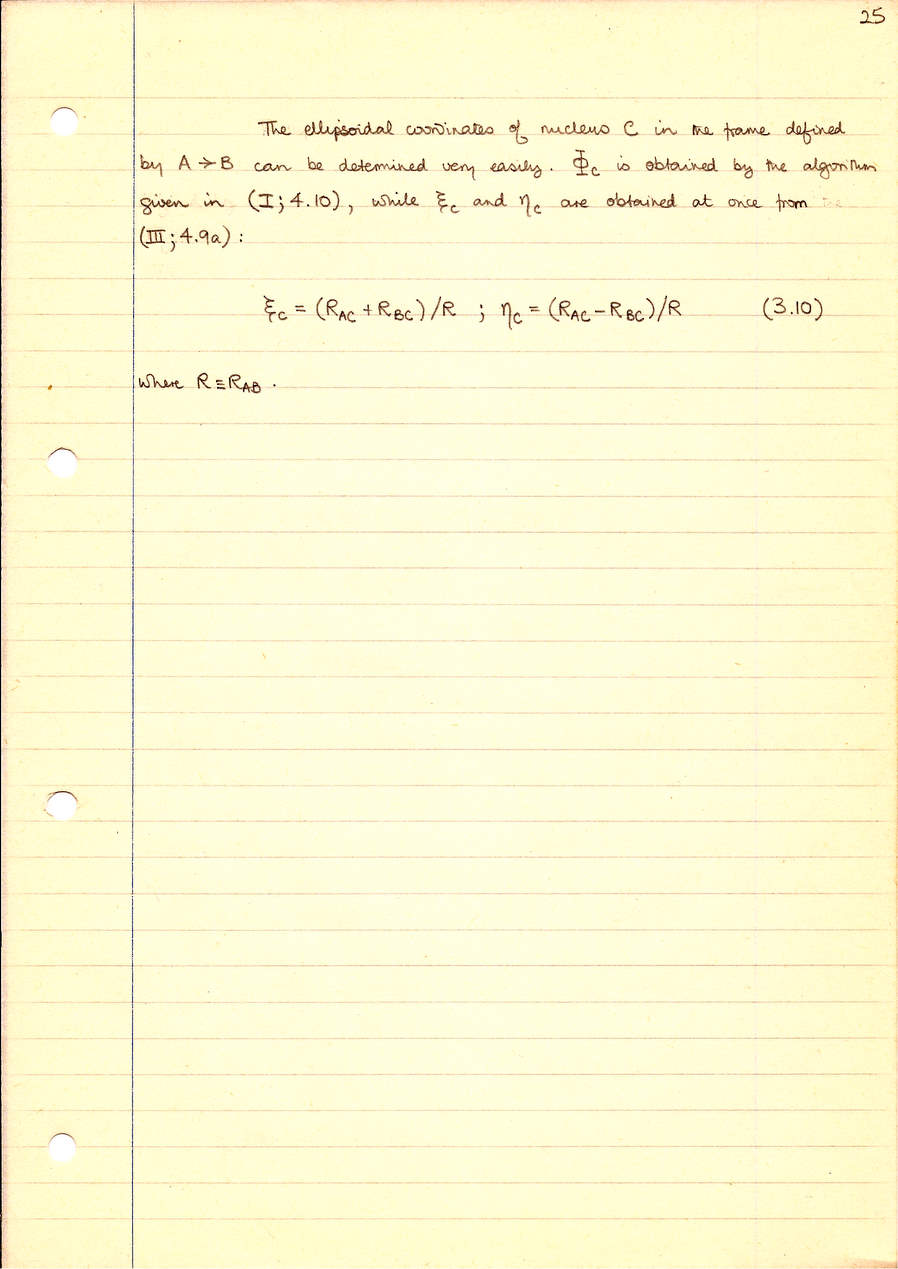 25
The ellipsoidal coordinates of nucleus C in the frame defined
by A → B can be determined very easily. Φ_C is obtained by the algorithm
given in (I; 4.10), while ξ_C and η_C are obtained at once from
(III; 4.9a):
ξ_C = (R_AC + R_BC)/R ; η_C = (R_AC − R_BC)/R (3.10)
where R ≡ R_AB.